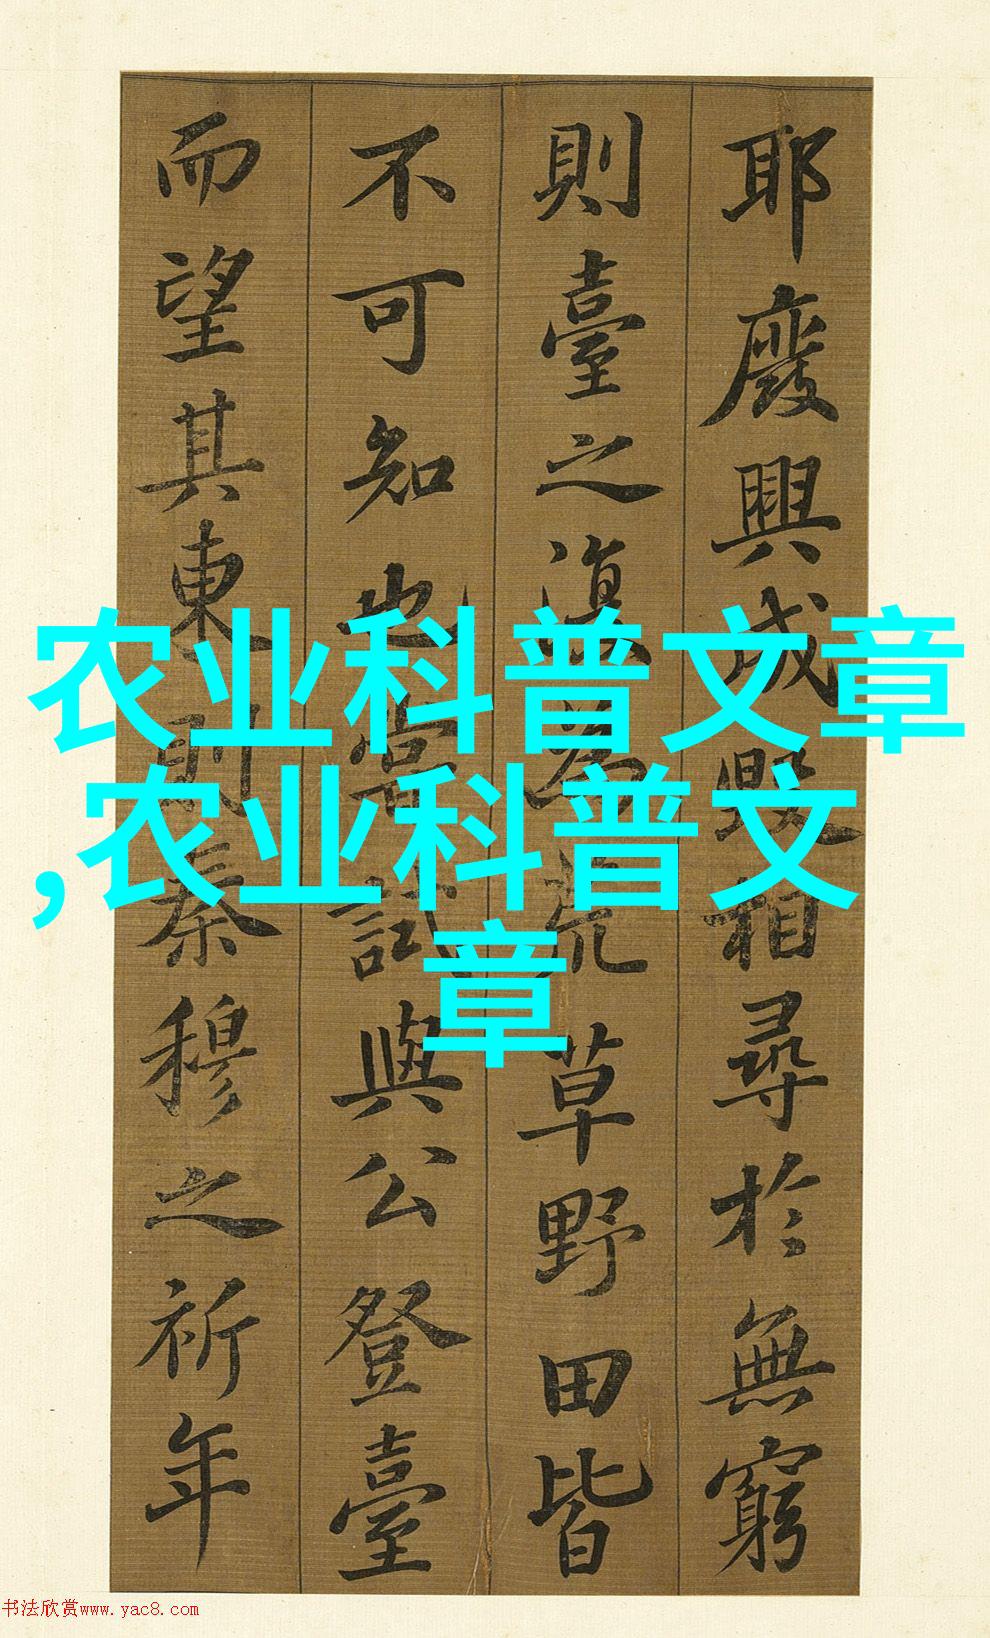 耶廢興成毀相尋於無窮
則臺之復為荒草野田皆
不可知也嘗試與公登臺
而望其東則秦穆之祈年
农业科普文章
,农业科普文
章
书法欣赏www.yac8.com